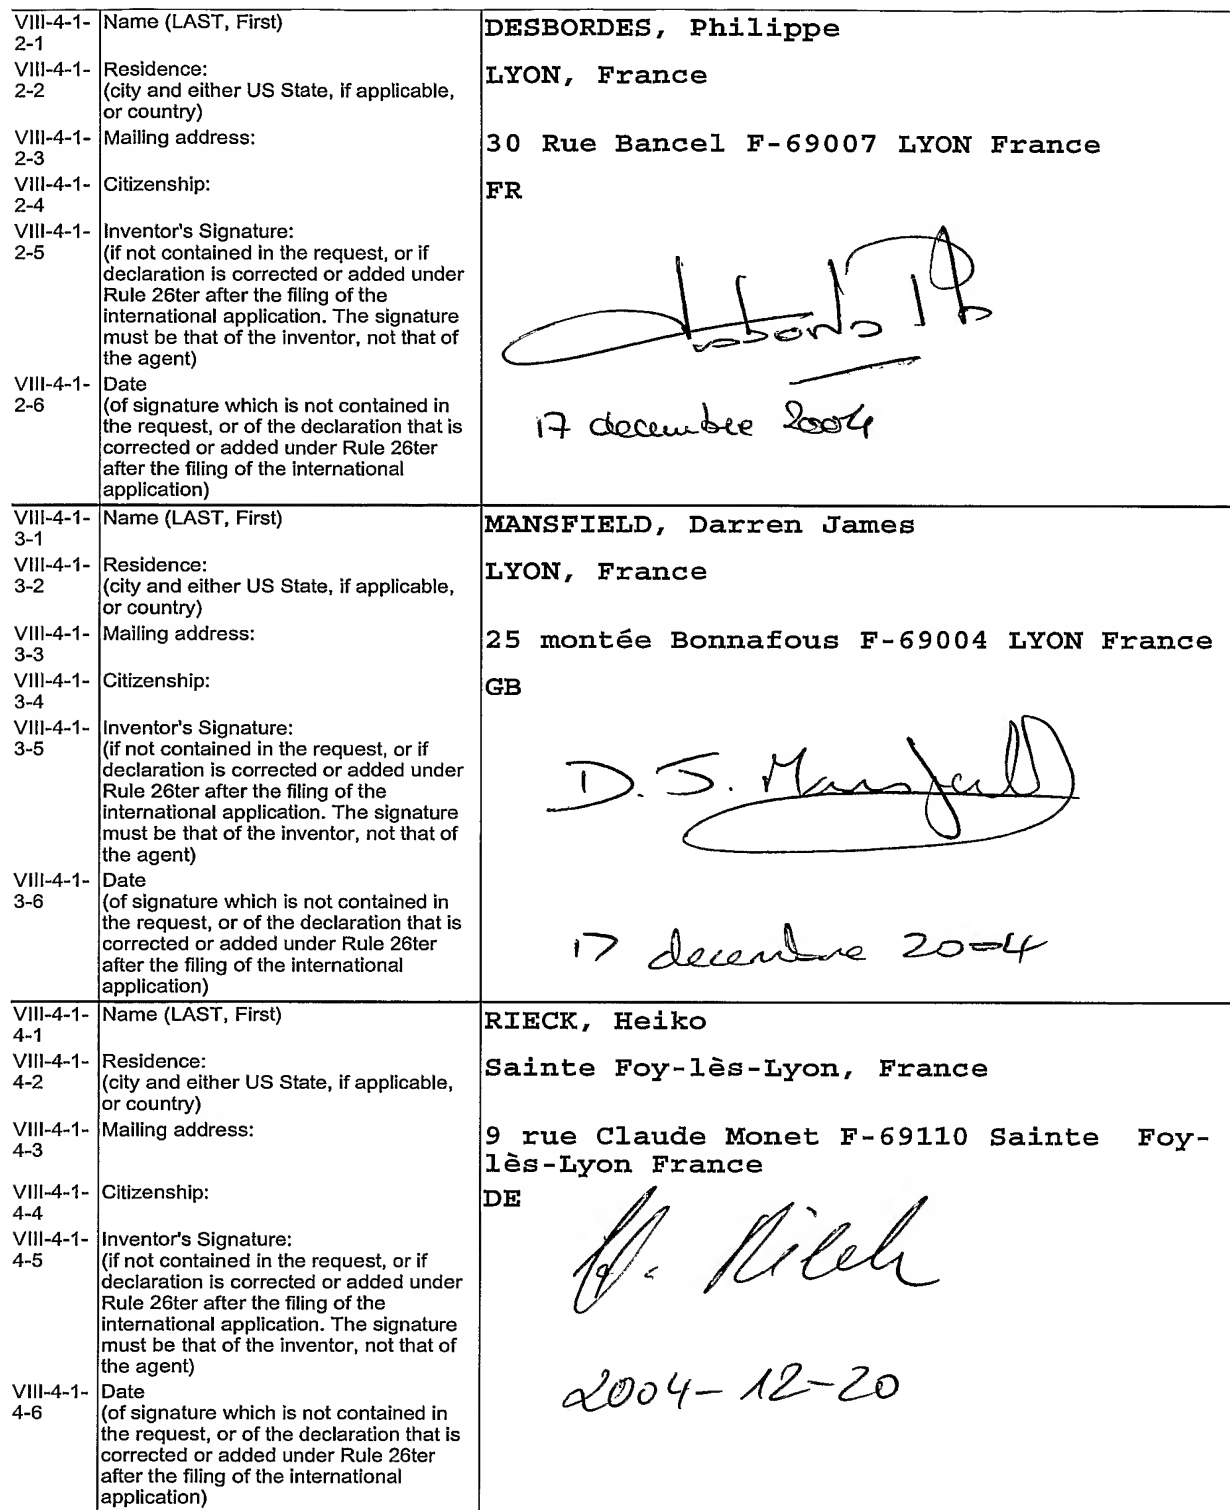 VIII-4-1-2-1 Name (LAST, First) DESBORDES, Philippe
VIII-4-1-2-2 Residence: LYON, France
(city and either US State, if applicable,
or country)
VIII-4-1-2-3 Mailing address: 30 Rue Bancel F-69007 LYON France
VIII-4-1-2-4 Citizenship: FR
VIII-4-1-2-5 Inventor's Signature:
(if not contained in the request, or if
declaration is corrected or added under
Rule 26ter after the filing of the
international application. The signature
must be that of the inventor, not that of
the agent)
VIII-4-1-2-6 Date
(of signature which is not contained in
the request, or of the declaration that is
corrected or added under Rule 26ter
after the filing of the international
application)
17 decembre 2004
VIII-4-1-3-1 Name (LAST, First) MANSFIELD, Darren James
VIII-4-1-3-2 Residence: LYON, France
(city and either US State, if applicable,
or country)
VIII-4-1-3-3 Mailing address: 25 montée Bonnafous F-69004 LYON France
VIII-4-1-3-4 Citizenship: GB
VIII-4-1-3-5 Inventor's Signature:
(if not contained in the request, or if
declaration is corrected or added under
Rule 26ter after the filing of the
international application. The signature
must be that of the inventor, not that of
the agent)
D. J. Mansfield
VIII-4-1-3-6 Date
(of signature which is not contained in
the request, or of the declaration that is
corrected or added under Rule 26ter
after the filing of the international
application)
17 decembre 2004
VIII-4-1-4-1 Name (LAST, First) RIECK, Heiko
VIII-4-1-4-2 Residence: Sainte Foy-lès-Lyon, France
(city and either US State, if applicable,
or country)
VIII-4-1-4-3 Mailing address: 9 rue Claude Monet F-69110 Sainte Foy-
lès-Lyon France
VIII-4-1-4-4 Citizenship: DE
VIII-4-1-4-5 Inventor's Signature:
(if not contained in the request, or if
declaration is corrected or added under
Rule 26ter after the filing of the
international application. The signature
must be that of the inventor, not that of
the agent)
H. Rieck
VIII-4-1-4-6 Date
(of signature which is not contained in
the request, or of the declaration that is
corrected or added under Rule 26ter
after the filing of the international
application)
2004-12-20